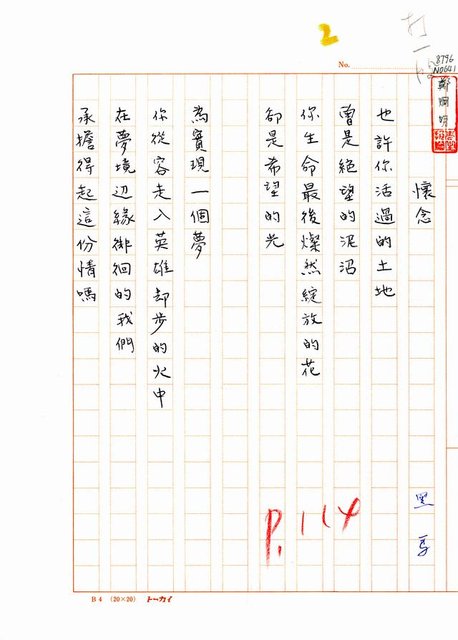 2
8796
NO641
No.
鄭烱明
懷念
也許你活過的土地
曾是絕望的泥沼
你生命最後燦然綻放的花
卻是希望的光
為實現一個夢
你從容走入英雄却步的火中
在夢境辺緣徘徊的我們
承擔得起這份情嗎
P.114
B4 (20×20) トーカイ